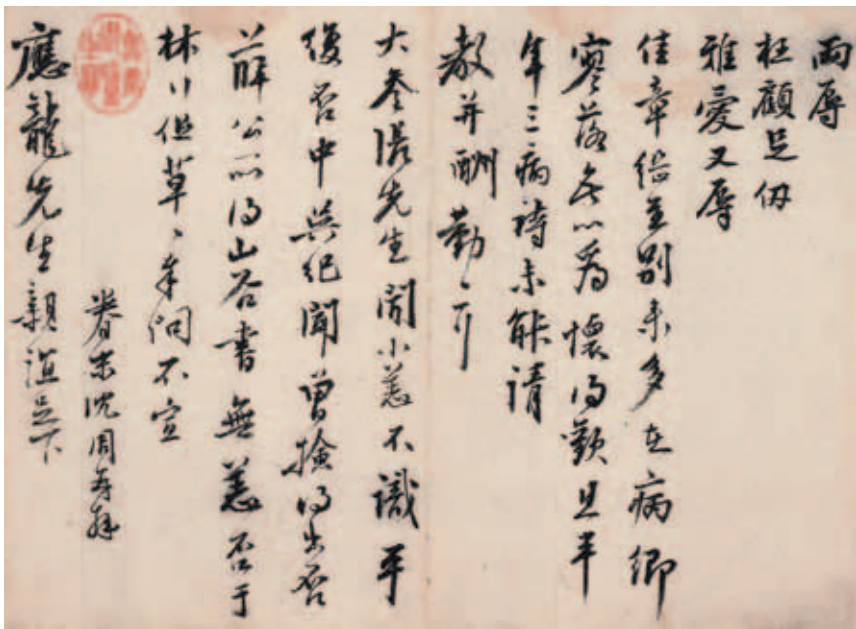 兩辱
枉顧足仞
雅愛又辱
佳章 別未多在病鄉
寥落無以為懷得歎且半
年三病詩未能請
教并酬勤〻
大參張先生聞小恙不識平
復否中吳紀聞曾撿得出否
薛公所得山谷書無恙否于
但草〻奉問不宣
眷末沈周再拜
應龍先生親誼足下